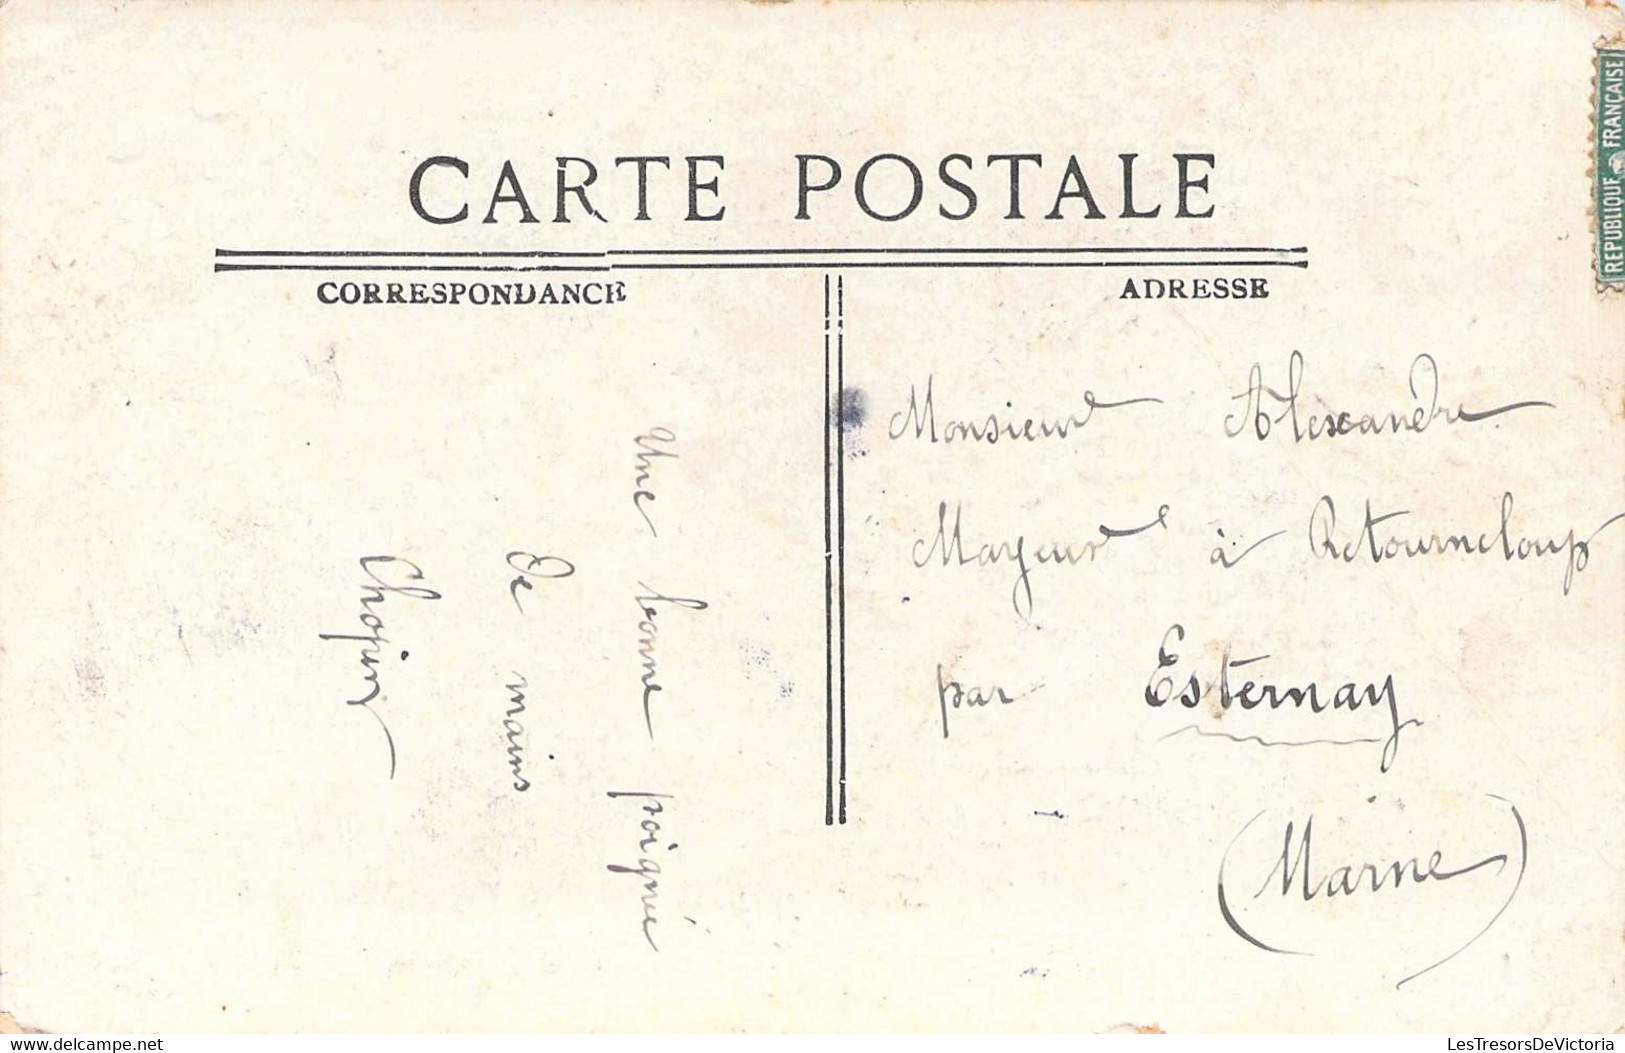 CARTE POSTALE
CORRESPONDANCE
ADRESSE
REPUBLIQUE FRANÇAISE
Une bonne poignée
de mains
Chopin
Monsieur Alexandre
Mayeur à Retourneloup
par Esternay
(Marne)
Delcampe.net
LesTresorsDeVictoria